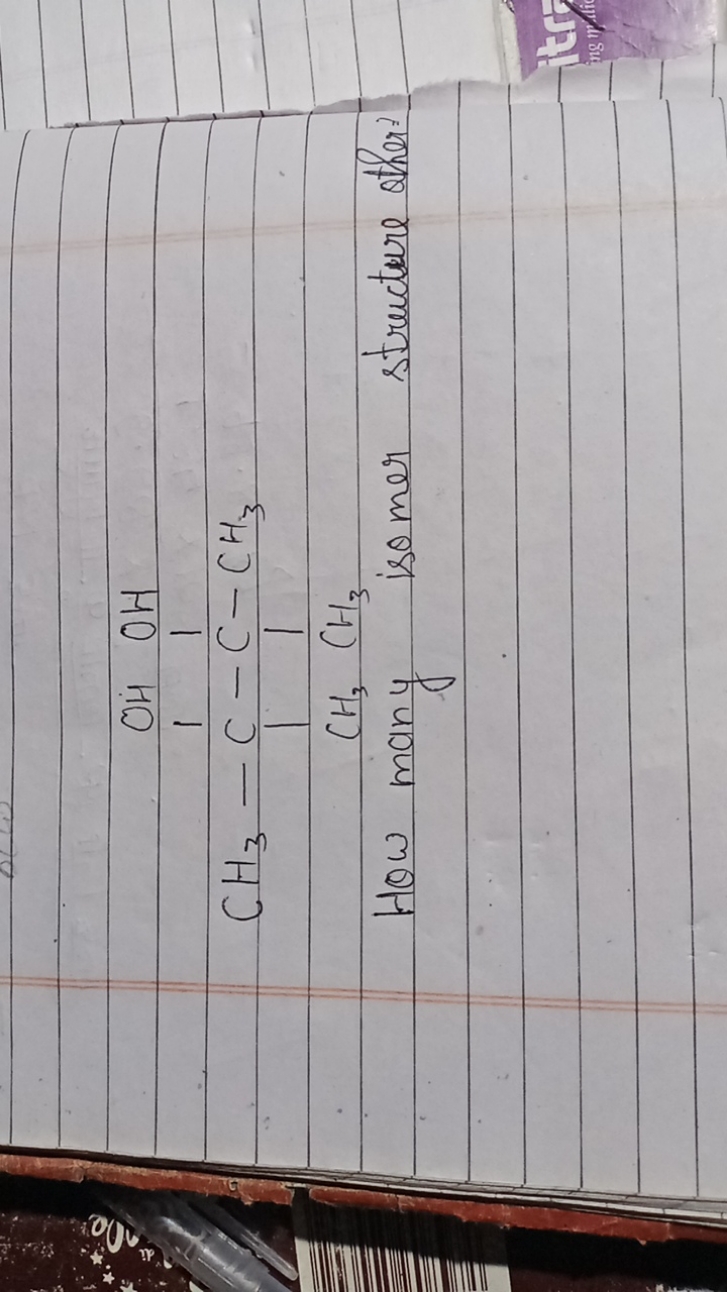 OH OH
CH3 — C — C — CH3
CH3 CH3
How many isomer structure other?
itra